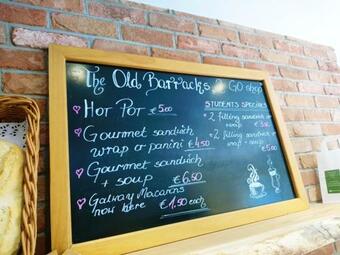 The Old Barracks 2 Go shop
Hot Pot €5.00
Gourmet sandwich
wrap or panini €4.50
Gourmet sandwich
+ soup €6.50
Galway Macarons
now here €1.50 each
Students Specials
2 filling sandwich or
wrap €3.50
2 filling sandwich or
wrap + soup
€5.00